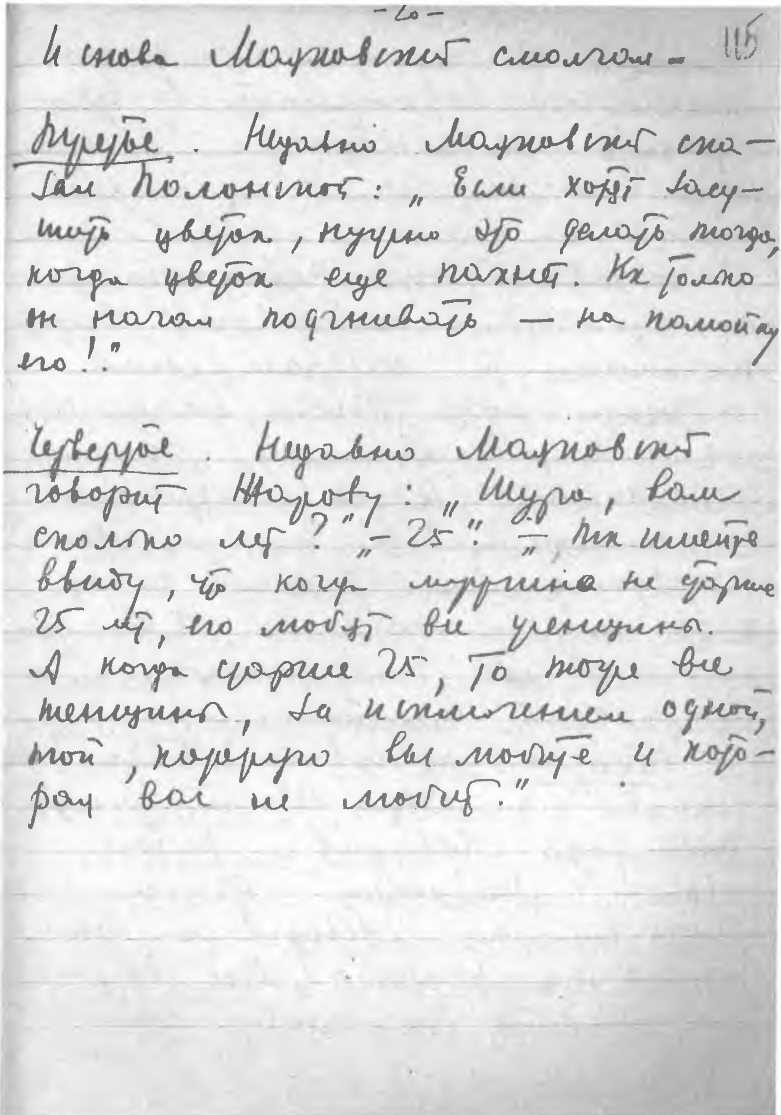 - 20 -
115
И снова Маяковский смолчал -
Третье. Недавно Маяковский ска-
зал Полонской: „Если хотят засу-
шить цветок, нужно это делать тогда,
когда цветок еще пахнет. Как только
он начал подгнивать — на помойку
его!."
Четвертое. Недавно Маяковский
говорит Жарову: „Шура, вам
сколько лет?" „- 25". „- Так имейте
ввиду, что когда мужчина не старше
25 лет, его любят все женщины.
А когда старше 25, то тоже все
женщины, за исключением одной,
той, которую вы любите и кото-
рая вас не любит."